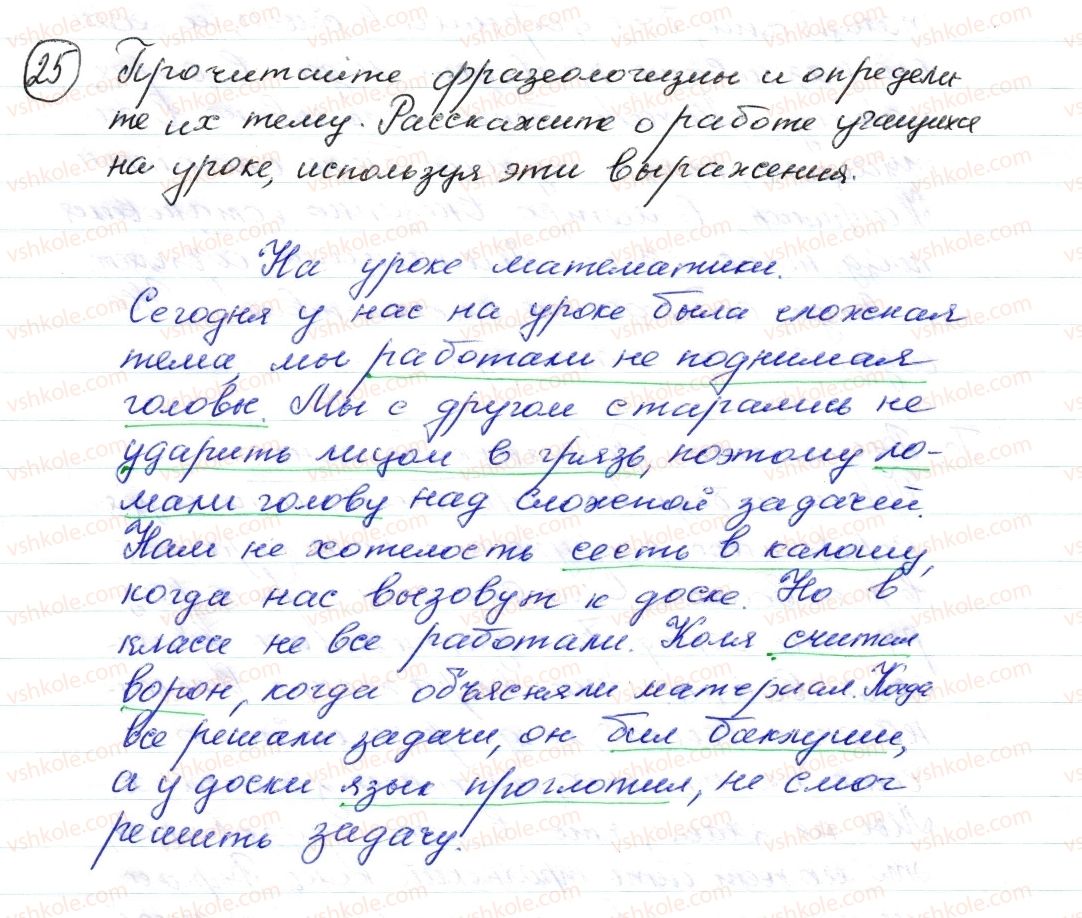 25 Прочитайте фразеологизмы и определи-
те их тему. Расскажите о работе учащихся
на уроке, используя эти выражения.
На уроке математики.
Сегодня у нас на уроке была сложная
тема, мы работали не поднимая
головы. Мы с другом старались не
ударить лицом в грязь, поэтому ло-
мали голову над сложной задачей.
Нам не хотелость сесть в калошу,
когда нас вызовут к доске. Но в
классе не все работали. Коля считал
ворон, когда объясняли материал. Когда
все решали задачи, он бил баклуши,
а у доски язык проглотил, не смог
решить задачу.